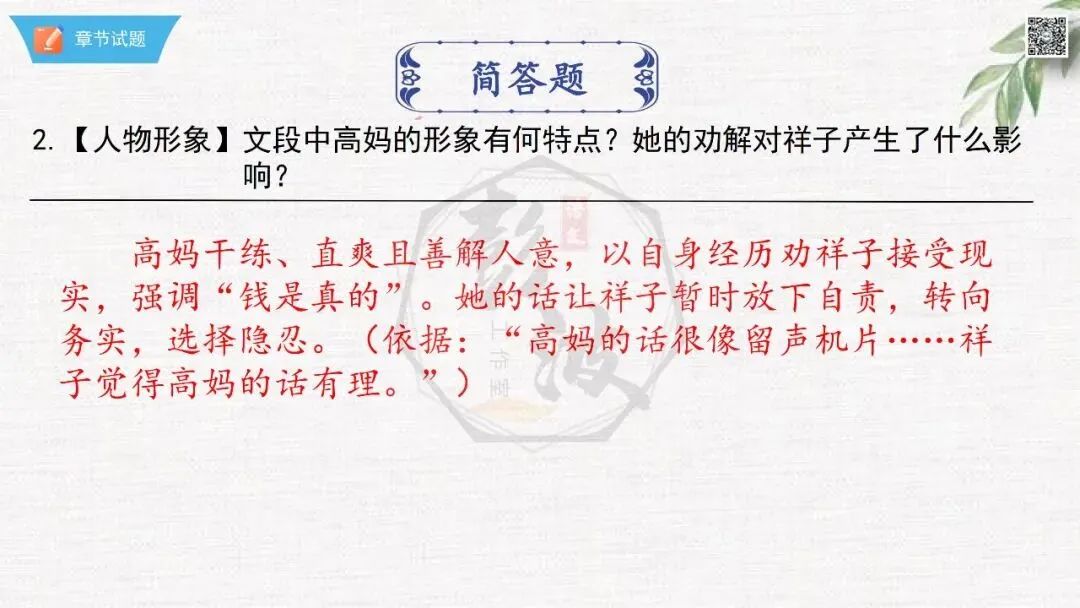 章节试题
简答题
2.【人物形象】文段中高妈的形象有何特点？她的劝解对祥子产生了什么影
响？
高妈干练、直爽且善解人意，以自身经历劝祥子接受现
实，强调“钱是真的”。她的话让祥子暂时放下自责，转向
务实，选择隐忍。（依据：“高妈的话很像留声机片……祥
子觉得高妈的话有理。”）
工作室